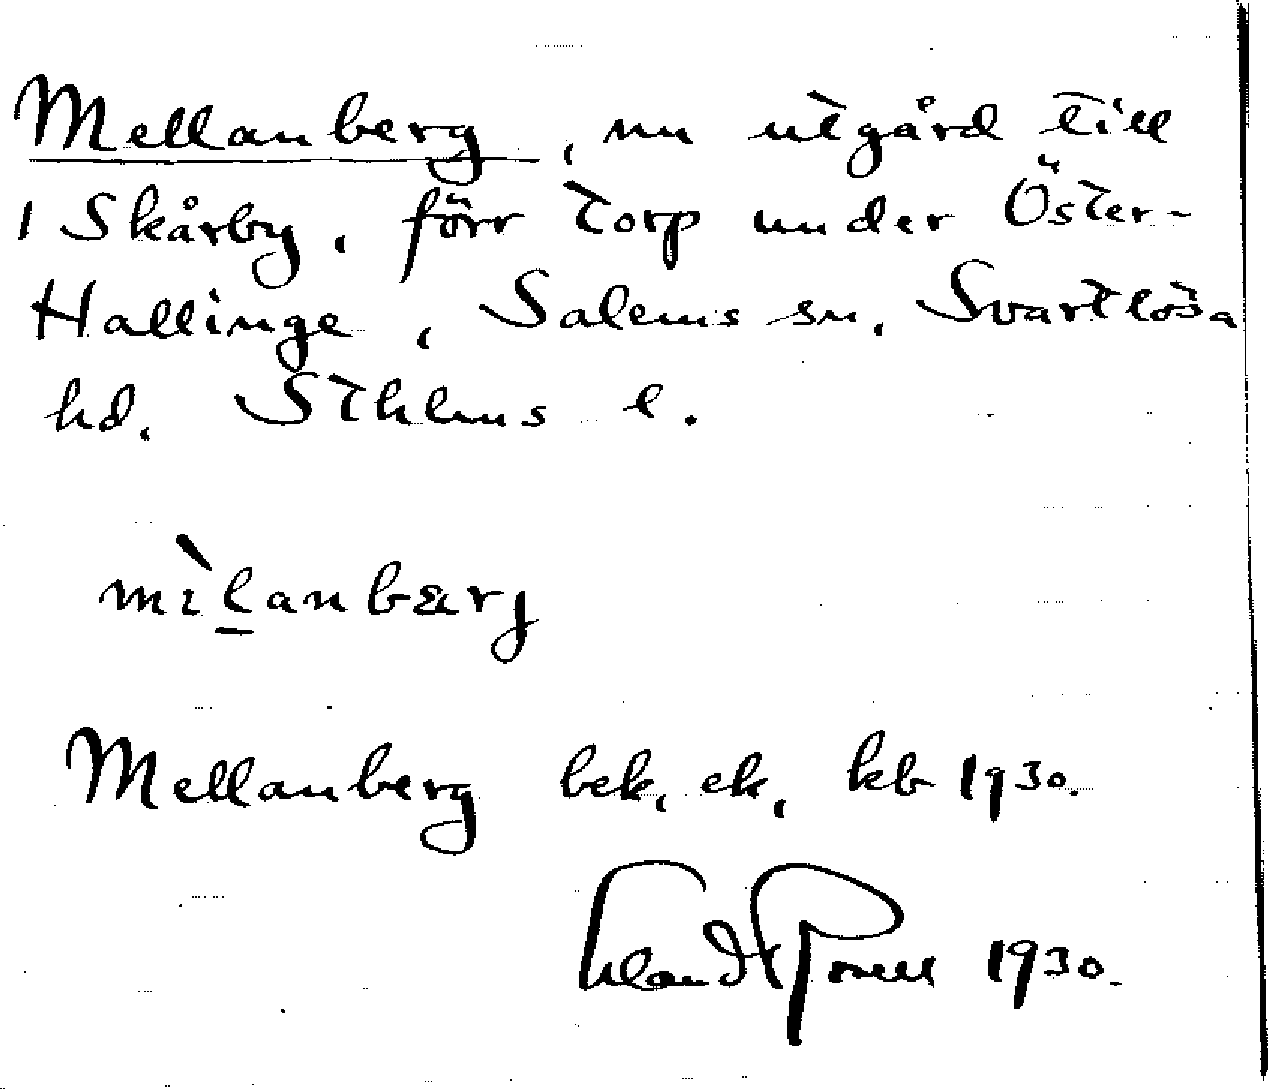 Mellanberg, nu utgård till
1 Skårby, förr torp under Öster-
Hallinge, Salems sn, Svartlösa
hd. Sthlms l.
mìḻanbærj
Mellanberg bek, ek, kb 1930.
1930.